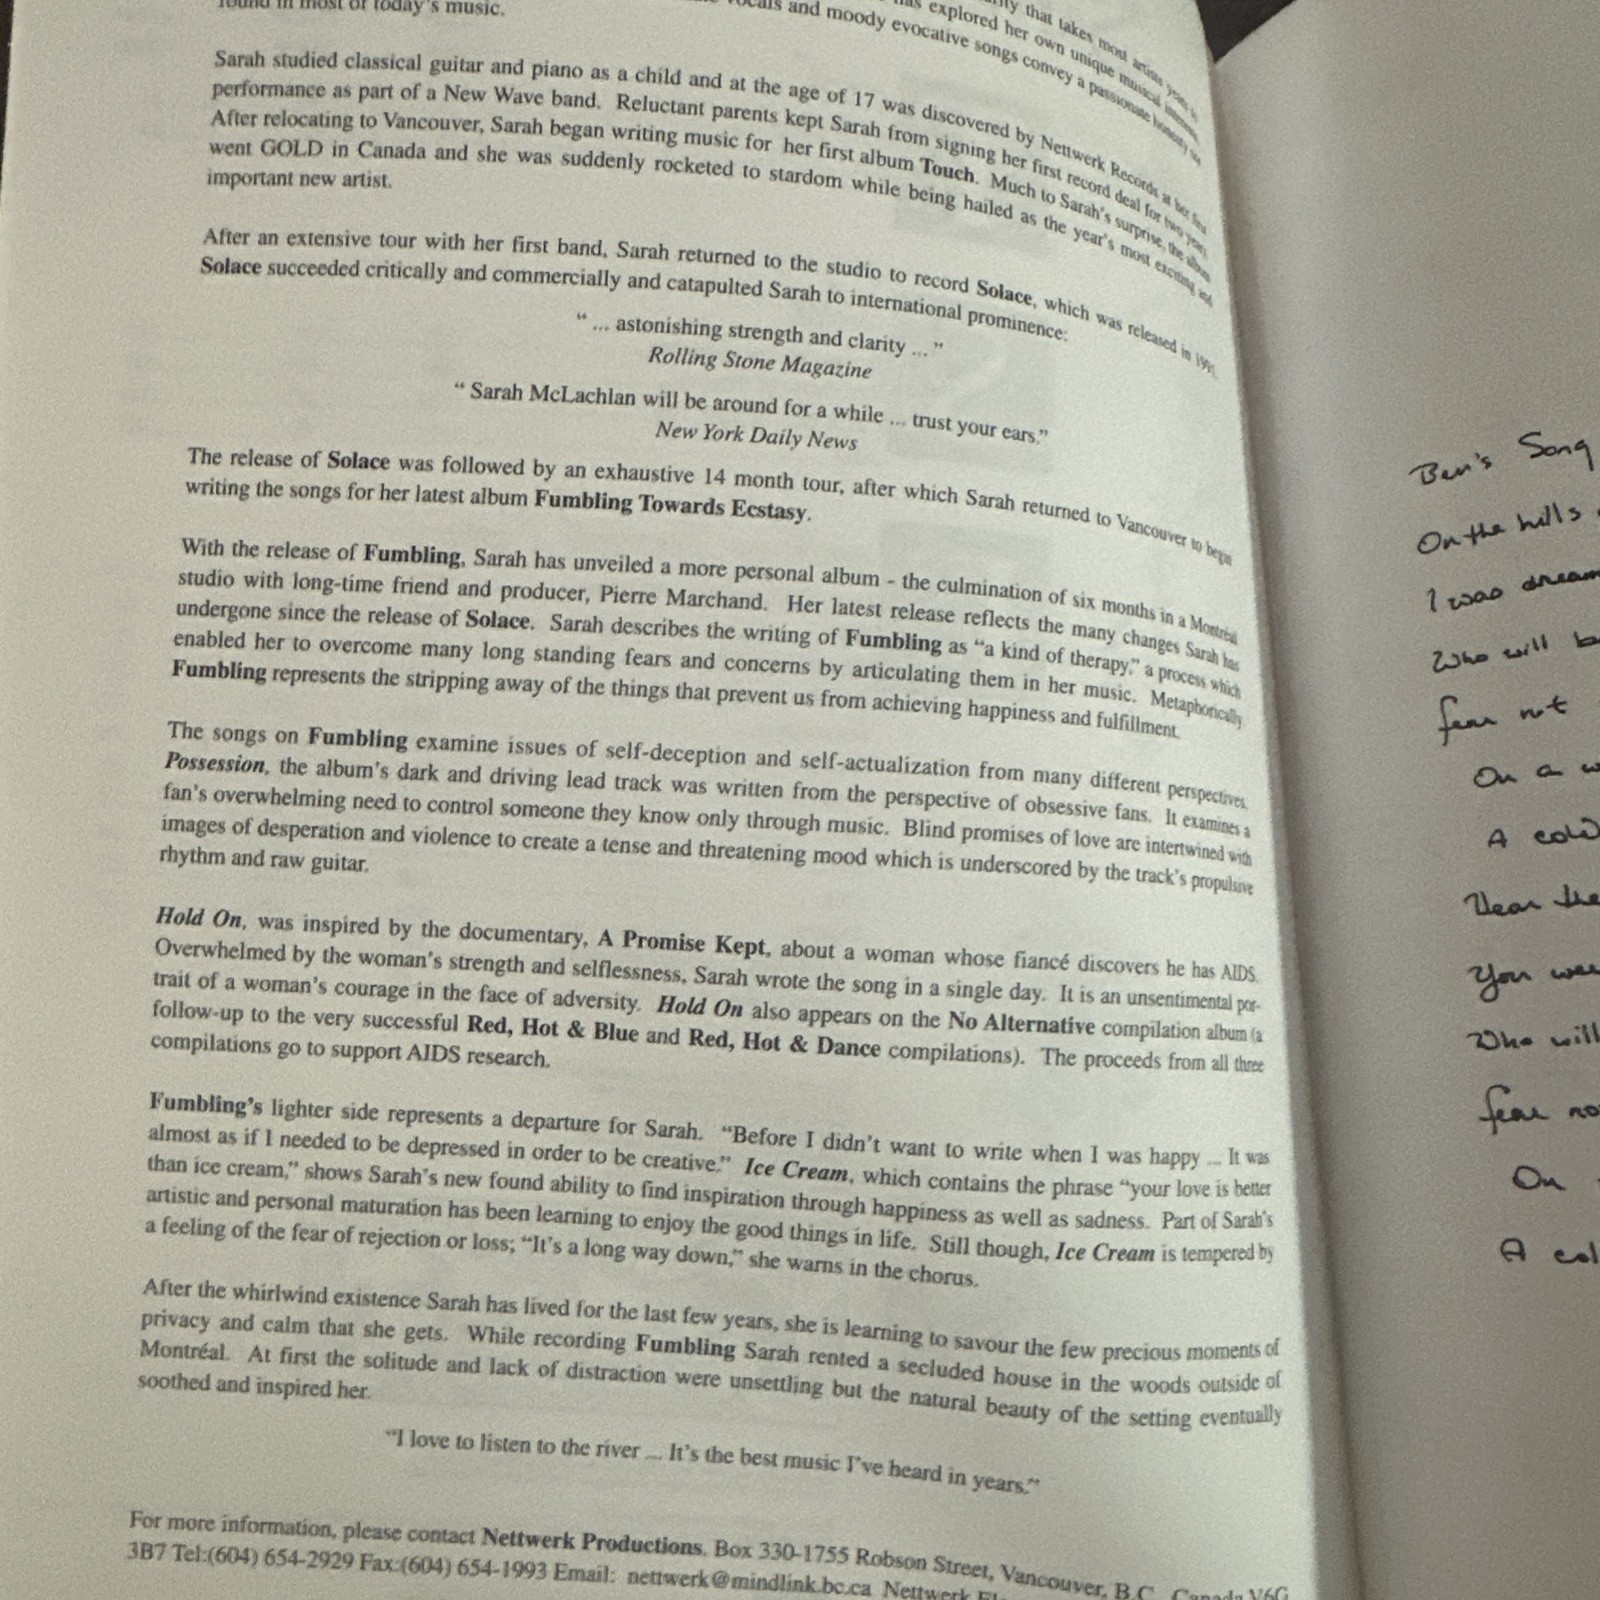 found in most of today's music.
vocals and moody evocative songs convey a passionate honesty not
has explored her own unique musical
that takes most artists years to
Sarah studied classical guitar and piano as a child and at the age of 17 was discovered by Nettwerk Records at her first
performance as part of a New Wave band. Reluctant parents kept Sarah from signing her first record deal for two years.
After relocating to Vancouver, Sarah began writing music for her first album Touch. Much to Sarah's surprise, the album
went GOLD in Canada and she was suddenly rocketed to stardom while being hailed as the year's most exciting and
important new artist.
After an extensive tour with her first band, Sarah returned to the studio to record Solace, which was released in 1991.
Solace succeeded critically and commercially and catapulted Sarah to international prominence:
“ ... astonishing strength and clarity ... ”
Rolling Stone Magazine
“ Sarah McLachlan will be around for a while ... trust your ears.”
New York Daily News
The release of Solace was followed by an exhaustive 14 month tour, after which Sarah returned to Vancouver to begin
writing the songs for her latest album Fumbling Towards Ecstasy.
With the release of Fumbling, Sarah has unveiled a more personal album - the culmination of six months in a Montréal
studio with long-time friend and producer, Pierre Marchand. Her latest release reflects the many changes Sarah has
undergone since the release of Solace. Sarah describes the writing of Fumbling as “a kind of therapy,” a process which
enabled her to overcome many long standing fears and concerns by articulating them in her music. Metaphorically
Fumbling represents the stripping away of the things that prevent us from achieving happiness and fulfillment.
The songs on Fumbling examine issues of self-deception and self-actualization from many different perspectives.
Possession, the album's dark and driving lead track was written from the perspective of obsessive fans. It examines a
fan's overwhelming need to control someone they know only through music. Blind promises of love are intertwined with
images of desperation and violence to create a tense and threatening mood which is underscored by the track's propulsive
rhythm and raw guitar.
Hold On, was inspired by the documentary, A Promise Kept, about a woman whose fiancé discovers he has AIDS.
Overwhelmed by the woman's strength and selflessness, Sarah wrote the song in a single day. It is an unsentimental por-
trait of a woman's courage in the face of adversity. Hold On also appears on the No Alternative compilation album (a
follow-up to the very successful Red, Hot & Blue and Red, Hot & Dance compilations). The proceeds from all three
compilations go to support AIDS research.
Fumbling's lighter side represents a departure for Sarah. “Before I didn't want to write when I was happy ... It was
almost as if I needed to be depressed in order to be creative.” Ice Cream, which contains the phrase “your love is better
than ice cream,” shows Sarah's new found ability to find inspiration through happiness as well as sadness. Part of Sarah's
artistic and personal maturation has been learning to enjoy the good things in life. Still though, Ice Cream is tempered by
a feeling of the fear of rejection or loss; “It's a long way down,” she warns in the chorus.
After the whirlwind existence Sarah has lived for the last few years, she is learning to savour the few precious moments of
privacy and calm that she gets. While recording Fumbling Sarah rented a secluded house in the woods outside of
Montréal. At first the solitude and lack of distraction were unsettling but the natural beauty of the setting eventually
soothed and inspired her.
“I love to listen to the river ... It's the best music I've heard in years.”
For more information, please contact Nettwerk Productions. Box 330-1755 Robson Street, Vancouver, B.C. Canada V6G
3B7 Tel:(604) 654-2929 Fax:(604) 654-1993 Email: nettwerk@mindlink.bc.ca Nettwerk
Ben's Song
On the hills
I was dream
Who will b
fear not
On a w
A cold
Hear the
You wee
Who will
fear no
On
A col